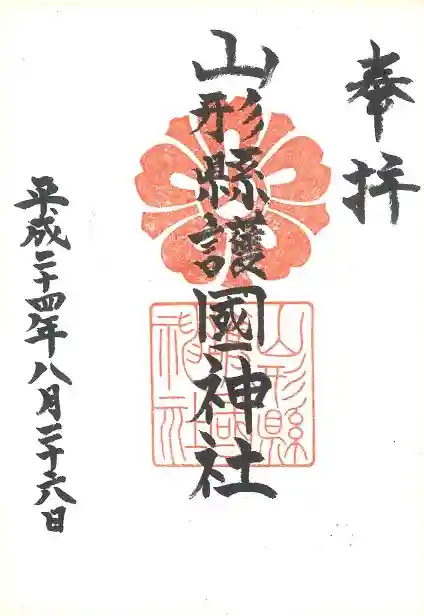 奉拝
山形縣護國神社
山形縣護國神社
平成二十四年八月二十六日